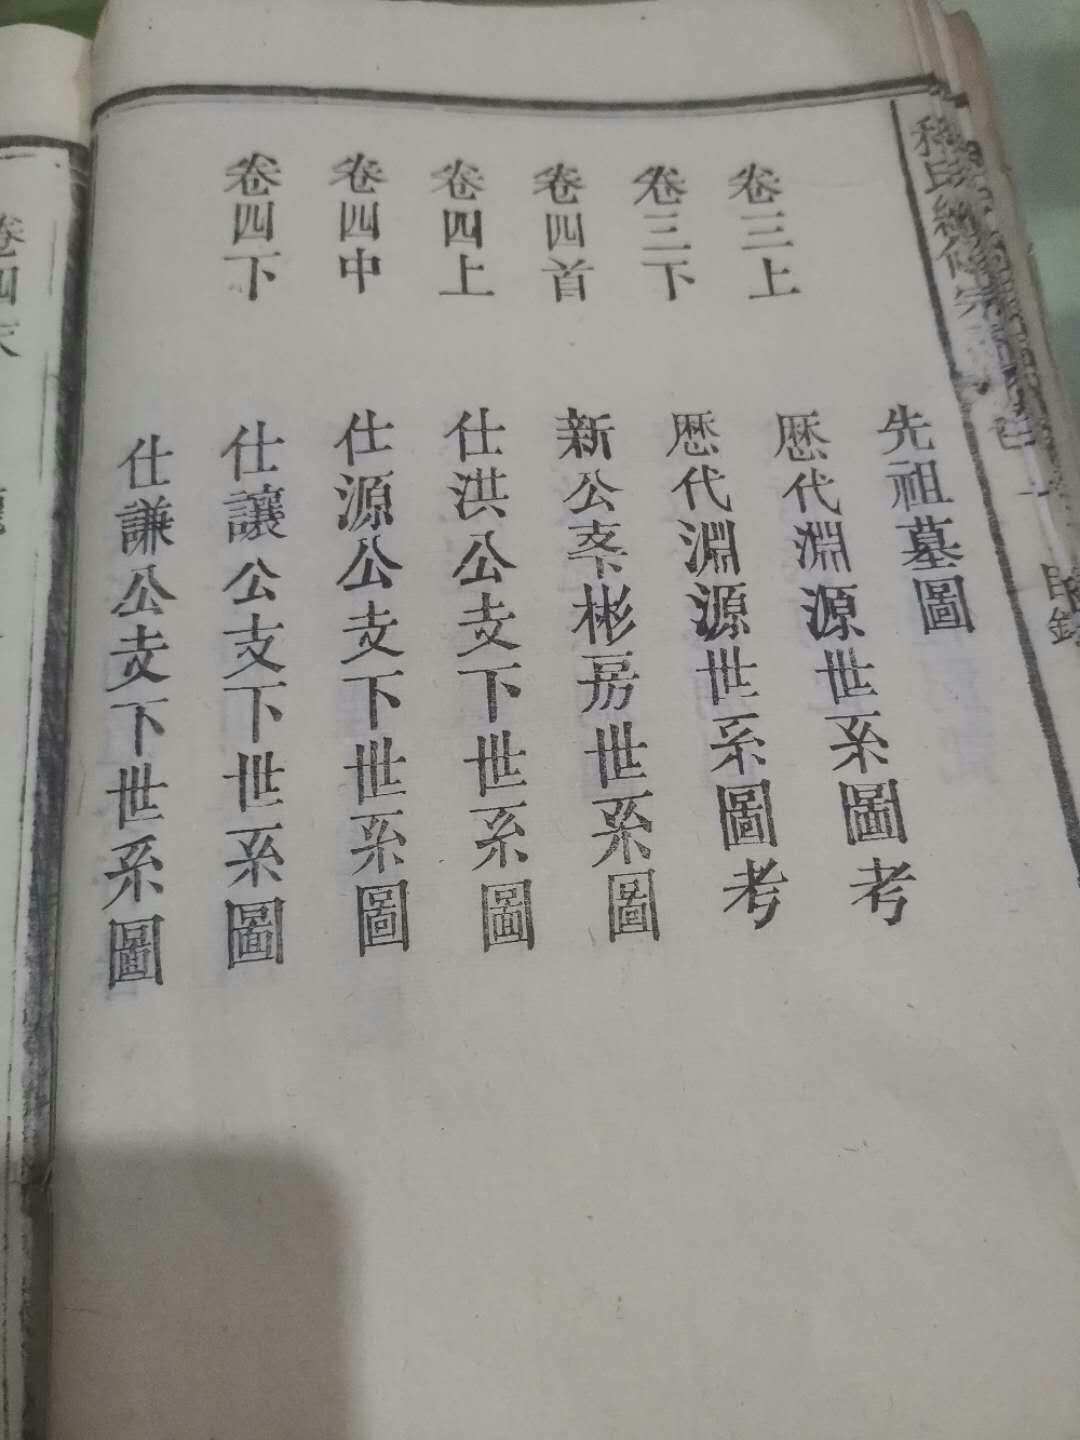 先祖墓圖
卷三上
歷代淵源世系圖考
卷三下
歷代淵源世系圖考
卷四首
新公支下彬房世系圖
卷四上
仕洪公支下世系圖
卷四中
仕源公支下世系圖
卷四下
仕讓公支下世系圖
仕謙公支下世系圖